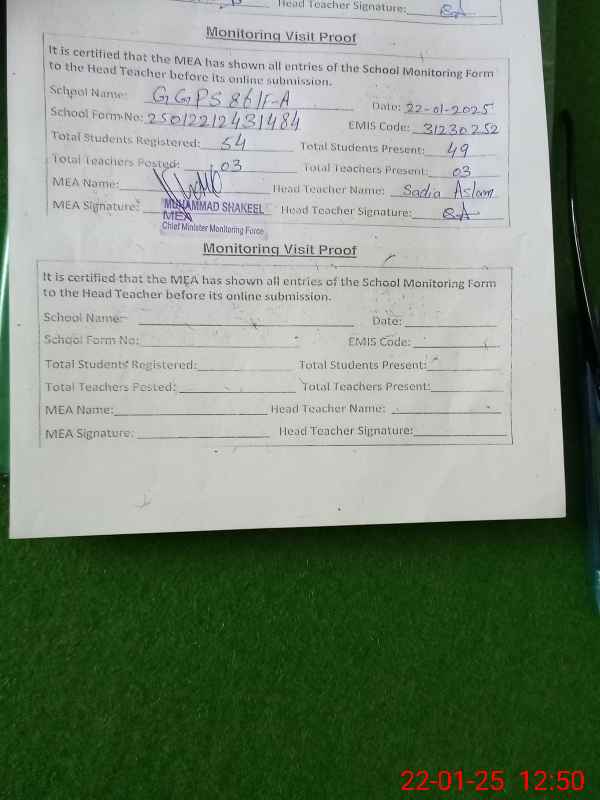 Head Teacher Signature: SA
Monitoring Visit Proof
It is certified that the MEA has shown all entries of the School Monitoring Form
to the Head Teacher before its online submission.
School Name: GGPS 861F-A Date: 22-01-2025
School Form No: 25012212431484 EMIS Code: 31230252
Total Students Registered: 54 Total Students Present: 49
Total Teachers Posted: 03 Total Teachers Present: 03
MEA Name: Head Teacher Name: Sadia Aslam
MEA Signature: MUHAMMAD SHAKEEL Head Teacher Signature: SA
MEA
Chief Minister Monitoring Force
Monitoring Visit Proof
It is certified that the MEA has shown all entries of the School Monitoring Form
to the Head Teacher before its online submission.
School Name: Date:
School Form No: EMIS Code:
Total Students Registered: Total Students Present:
Total Teachers Posted: Total Teachers Present:
MEA Name: Head Teacher Name:
MEA Signature: Head Teacher Signature:
22-01-25 12:50